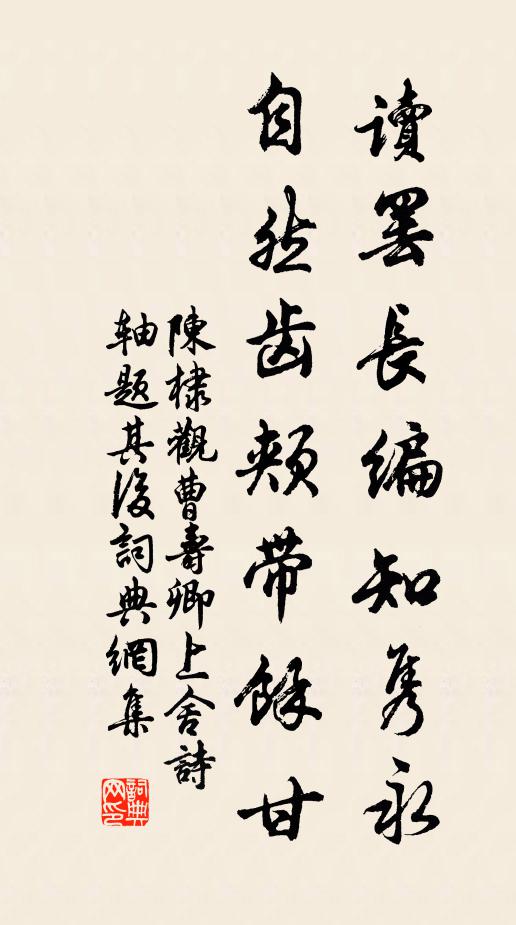 讀罢長編知隽永
自然齿颊带餘甘
陳棣觀曹壽卿上舍詩
軸題其後詞典網集
詞典網印